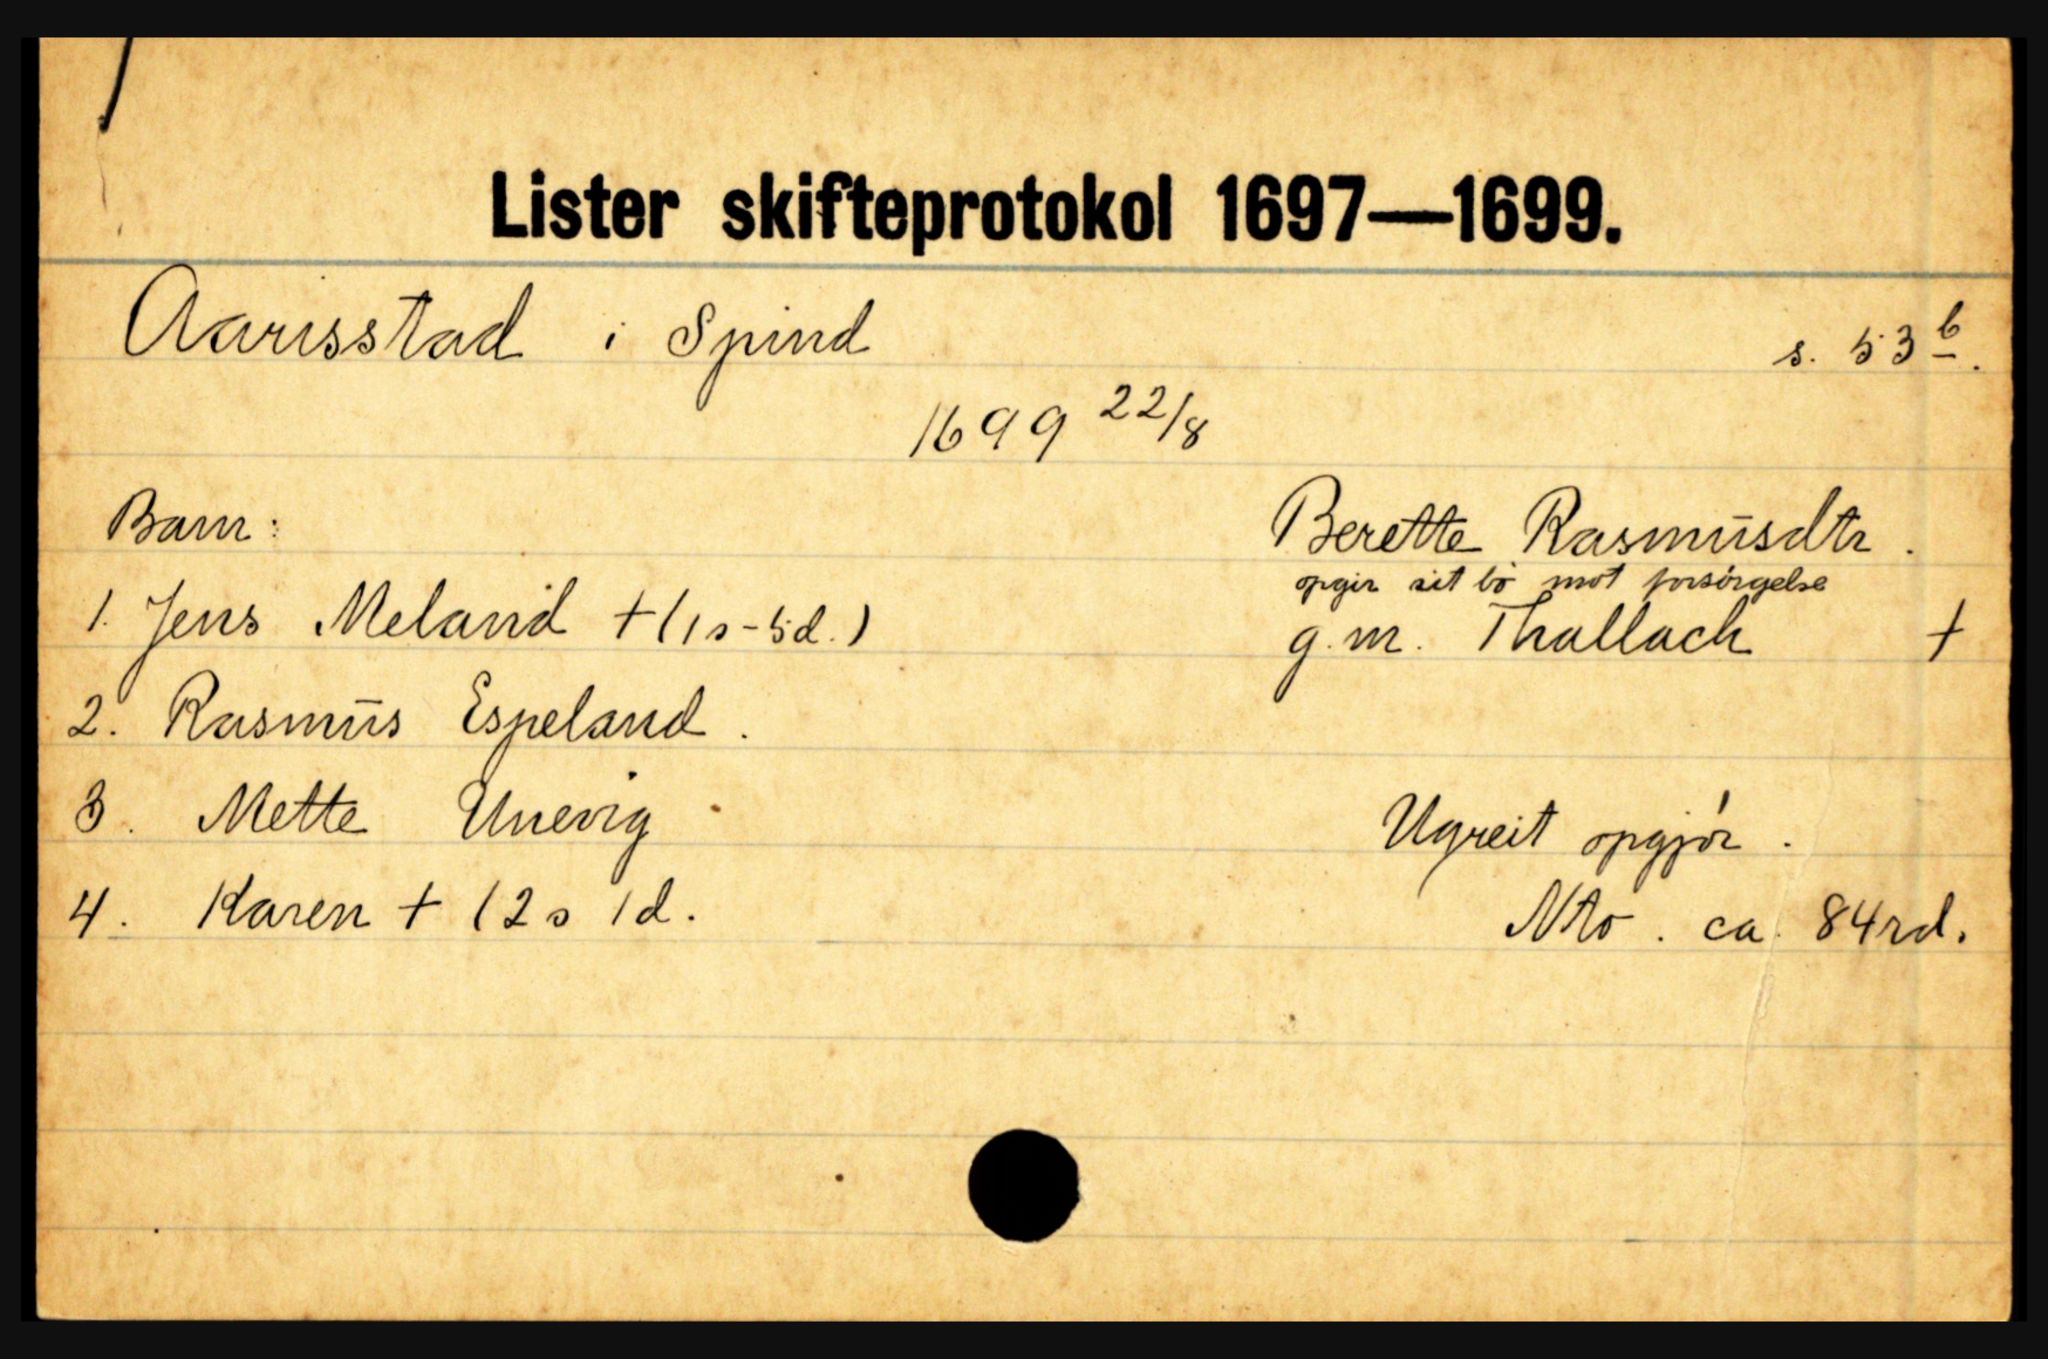 Lister skifteprotokol 1697—1699.
Aarisstad i Spind s. 53 b.
1699 22/8
Barn: Berette Rasmusdtr.
opgir sit bo mot forsörgelse
1. Jens Meland + (1s-5d.) g.m. Thallach +
2. Rasmus Espeland.
3. Mette Unevig Ugreit opgjör.
4. Karen + (2s 1d. Nto. ca. 84rd.